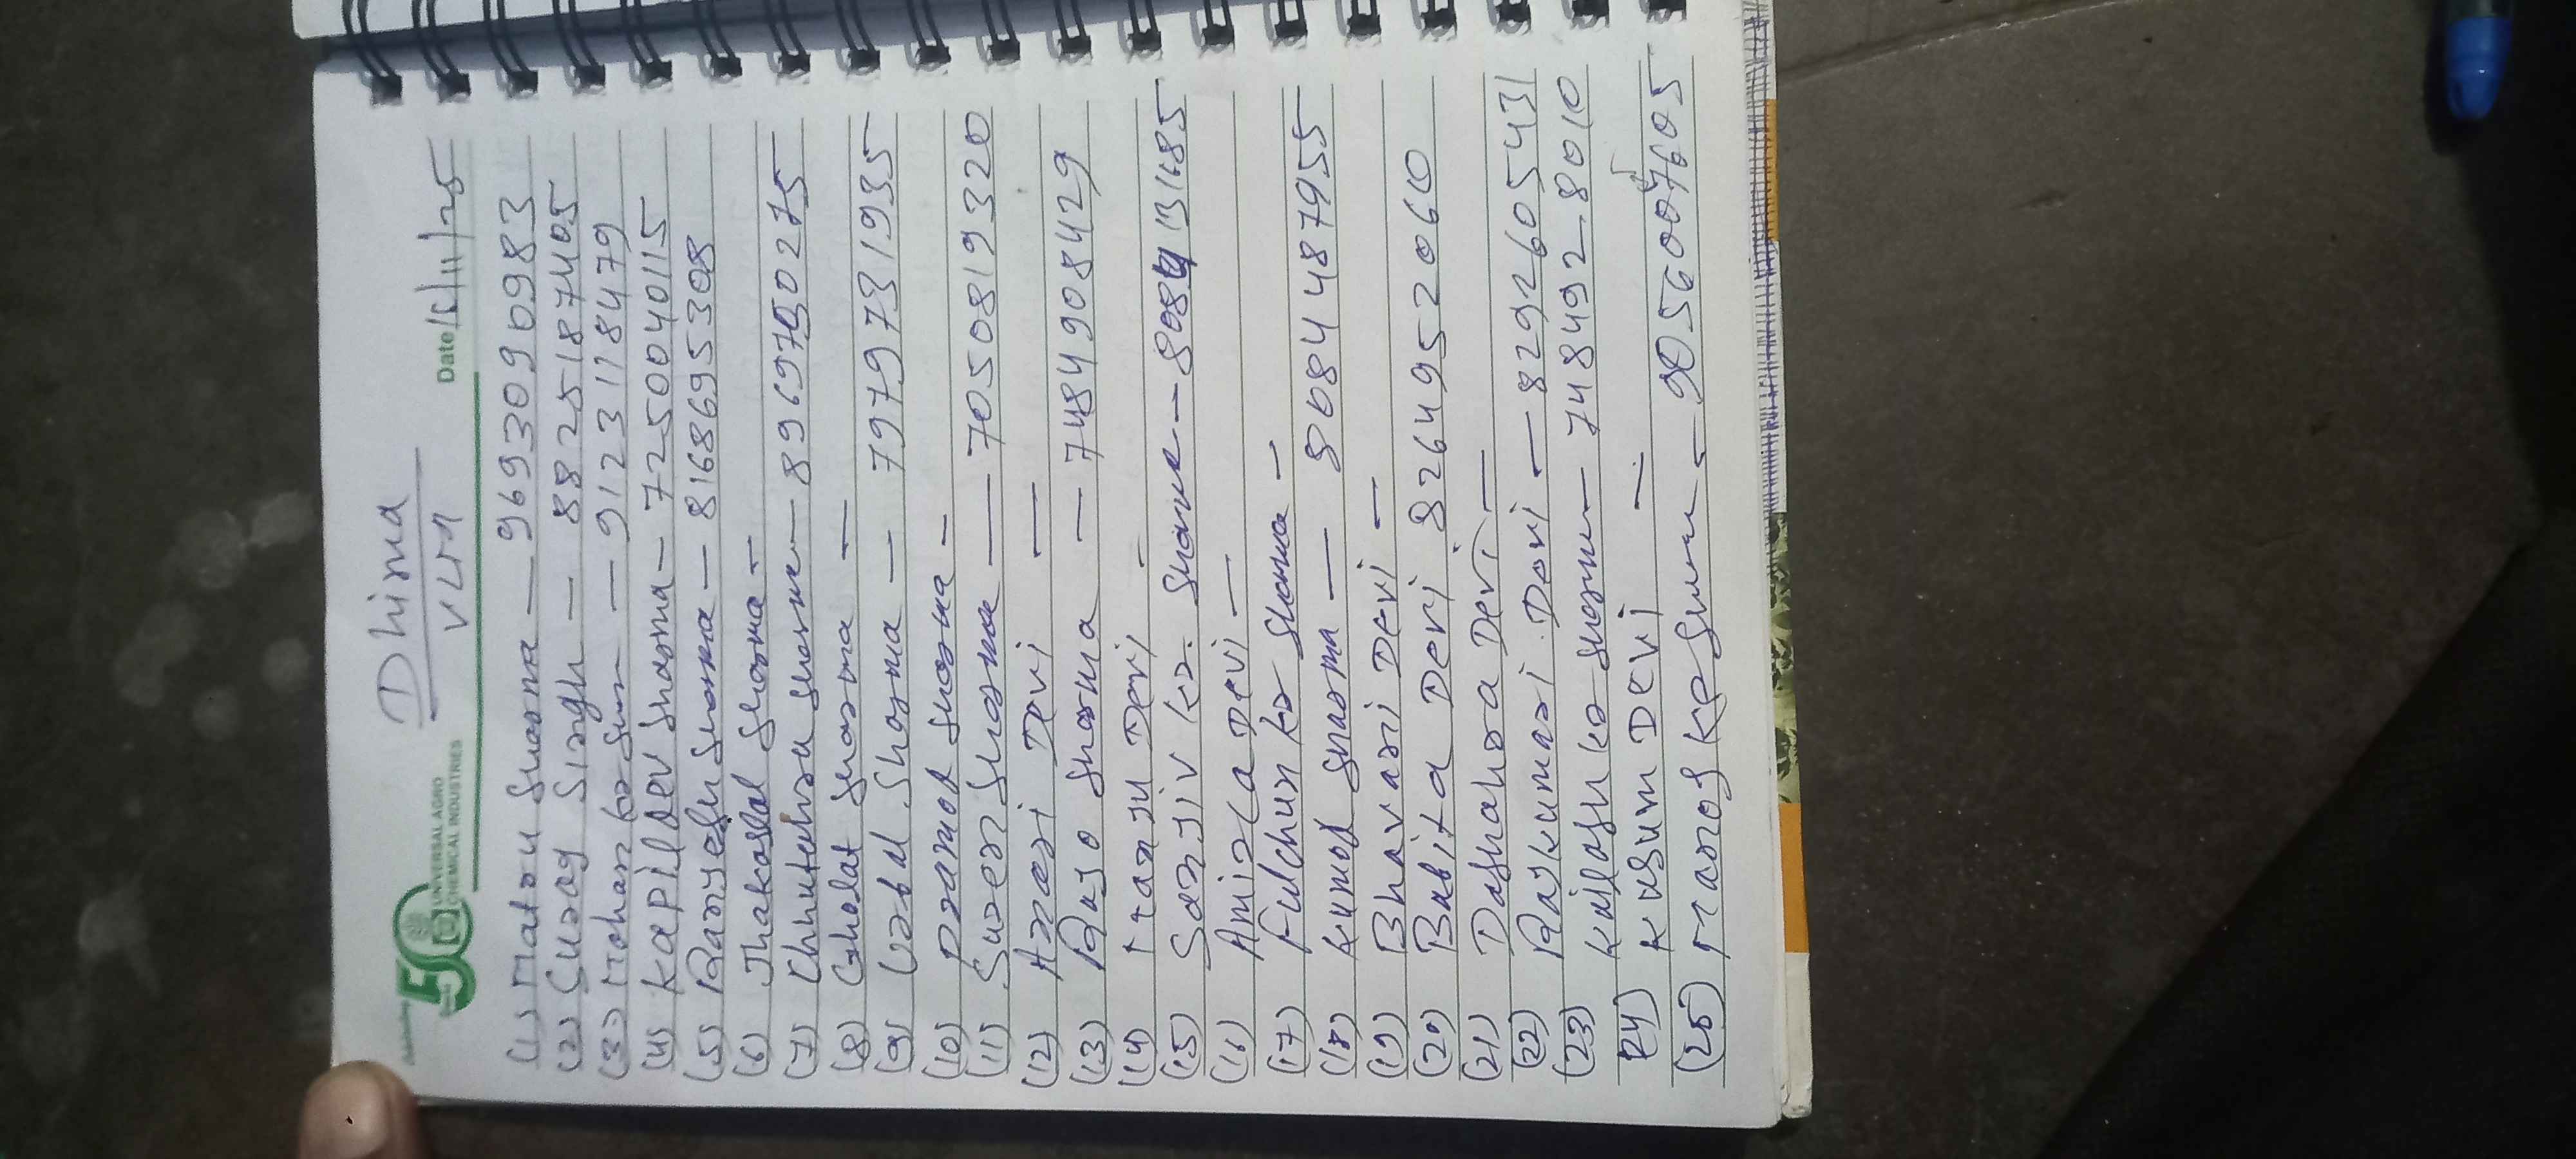 Dhima
VLM
50
UNIVERSAL AGRO
CHEMICAL INDUSTRIES
Date 15/11/25
(1) Matru Sharma — 9693090983
(2) Surag Singh — 8825187405
(3) Mohan kr — 9123118479
(4) Kapildev Sharma — 7250040115
(5) Ramyesh Sharma — 8168695308
(6) Thakorlal Sharma —
(7) Chhutehra Sharma — 8969750275
(8) Gholat Sharma —
(9) Sharma — 7979731935
(10) Pramod Sharma —
(11) Suren Sharma — 7050819320
(12) Devi —
(13) Rajo Sharma — 7484908429
(14) Devi —
(15) Sanjiv kr. Sharma — 31685
(16) Devi —
(17) Fulchun kr Sharma —
(18) Kumod Sharma — 8084487955
(19) Bhavari Devi —
(20) Babita Devi 8264952060
(21) Dashahra Devi —
(22) Rajkumari Devi — 8292605431
(23) Kailash kr Sharma — 7484928010
(24) Kusum Devi —
(25) Manoj Kr — 9056007605